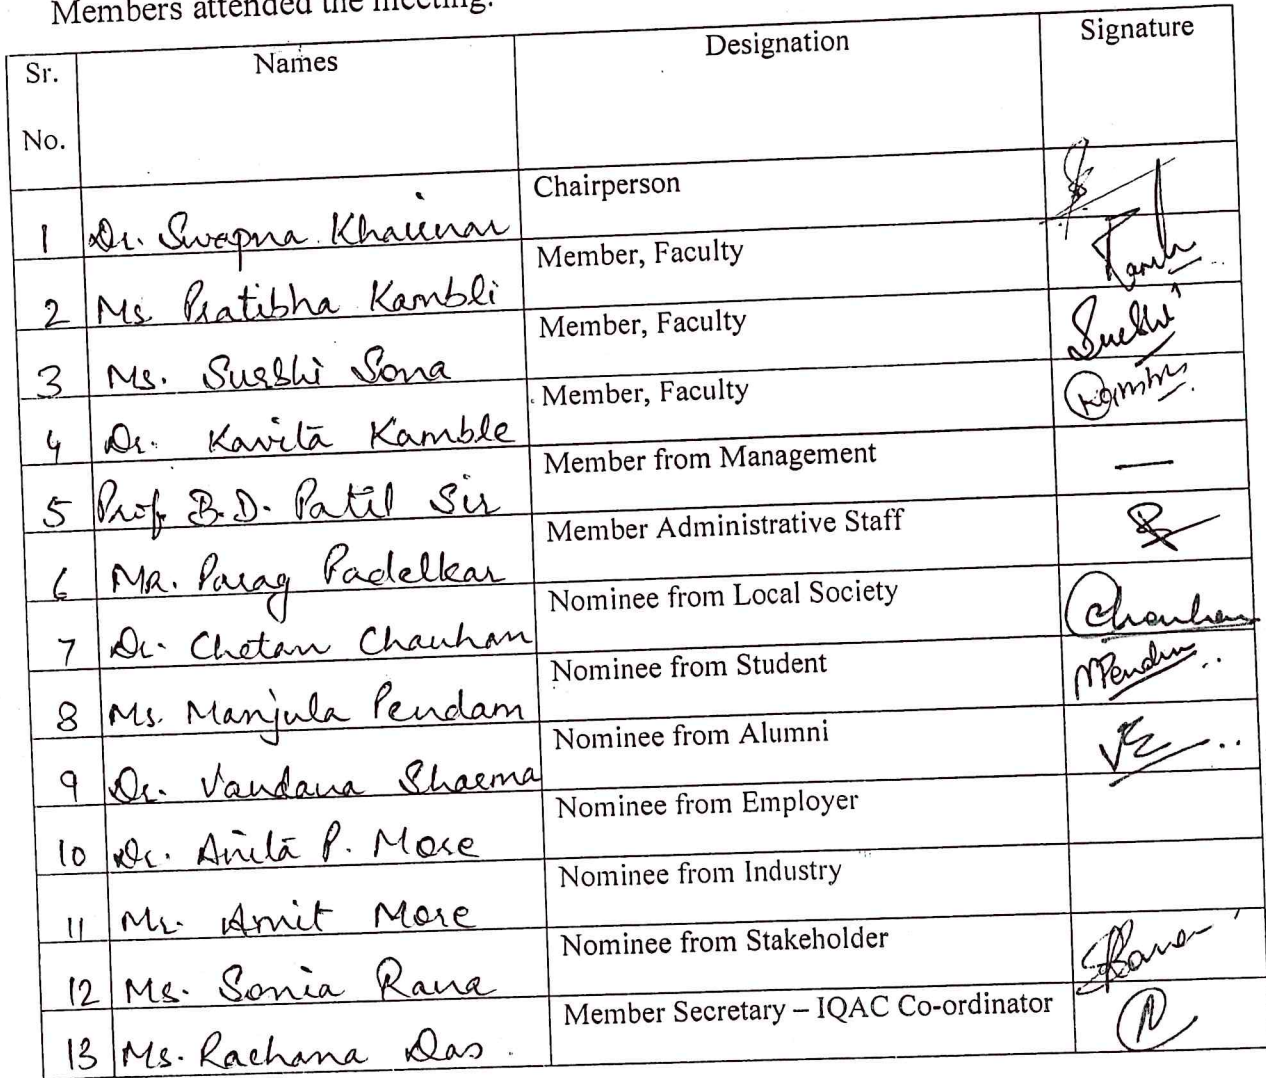 Members attended the meeting.
Sr. No. Names Designation Signature
1 Dr. Swapna Khairnar Chairperson
2 Ms. Pratibha Kambli Member, Faculty
3 Ms. Surbhi Sona Member, Faculty
4 Dr. Kavita Kamble Member, Faculty
5 Prof. B.D. Patil Sir Member from Management —
6 Mr. Parag Padelkar Member Administrative Staff
7 Dr. Chetan Chauhan Nominee from Local Society Chauhan
8 Ms. Manjula Pendam Nominee from Student
9 Dr. Vandana Sharma Nominee from Alumni
10 Dr. Anita P. More Nominee from Employer
11 Mr. Amit More Nominee from Industry
12 Ms. Sonia Rana Nominee from Stakeholder
13 Ms. Rachana Das. Member Secretary – IQAC Co-ordinator